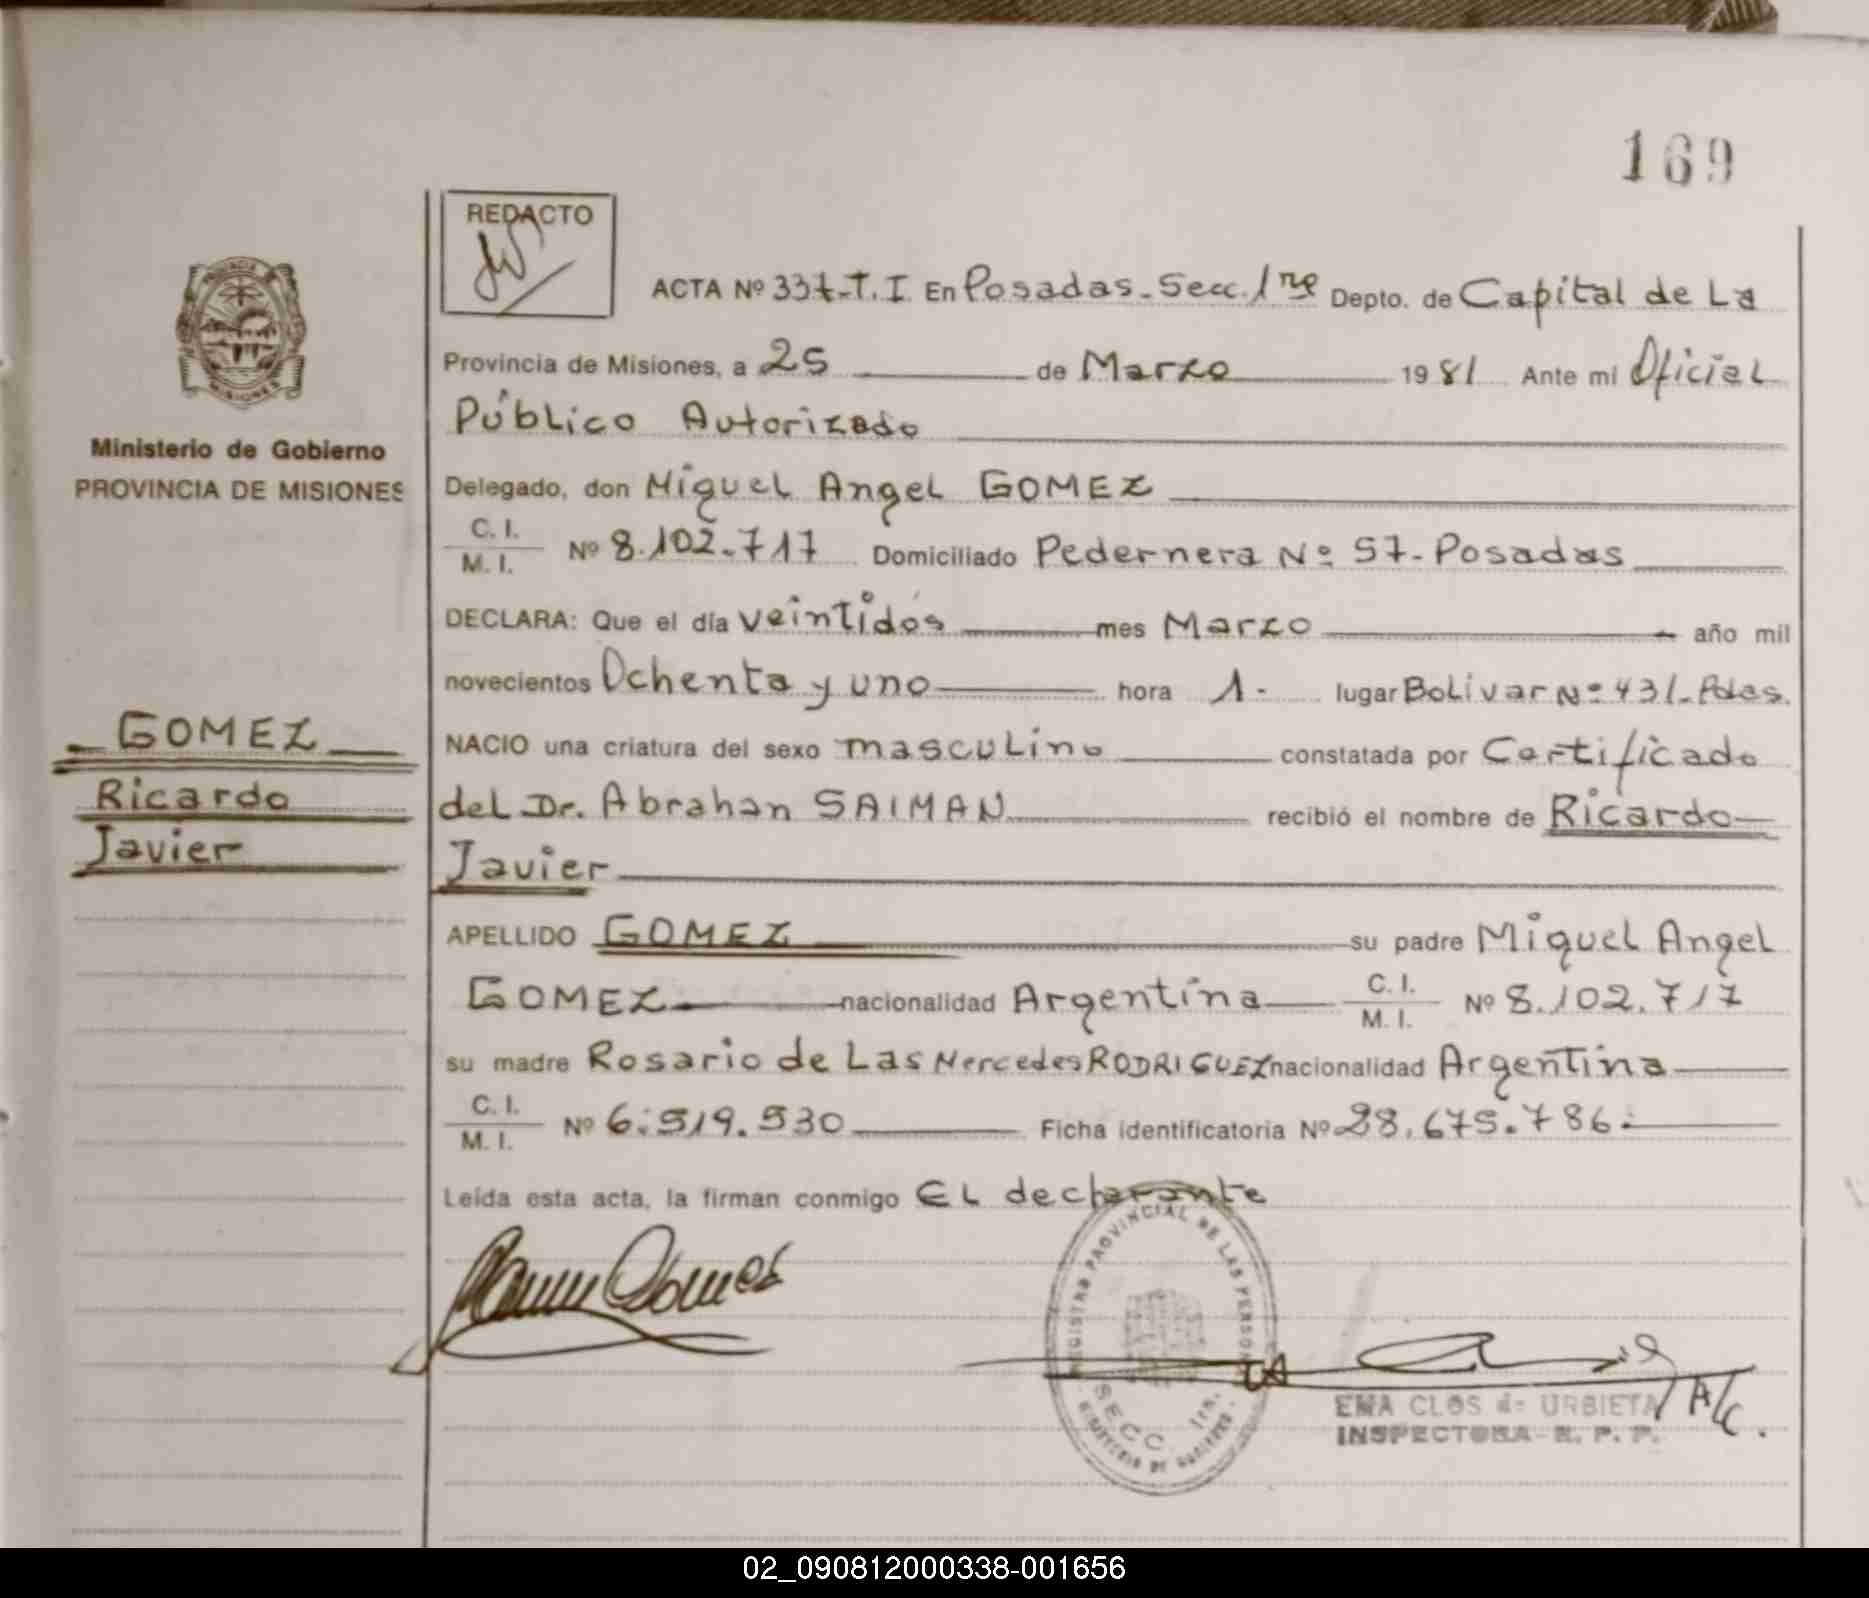 169
REDACTO
ACTA Nº 337-T.I. En Posadas-Secc. 1ra Depto. de Capital de La
Provincia de Misiones, a 25 de Marzo 1981 Ante mi Oficial
Público Autorizado
Delegado, don Miguel Angel GOMEZ
C. I.
M. I. Nº 8.102.717 Domiciliado Pedernera Nº 57-Posadas
DECLARA: Que el día veintidós mes Marzo año mil
novecientos Ochenta y uno hora 1.- lugar Bolívar Nº 431-Pdas.
NACIO una criatura del sexo masculino constatada por Certificado
del Dr. Abrahan SAIMAN recibió el nombre de Ricardo
Javier
APELLIDO GOMEZ su padre Miguel Angel
GOMEZ nacionalidad Argentina C. I.
M. I. Nº 8.102.717
su madre Rosario de Las Mercedes RODRIGUEZ nacionalidad Argentina
C. I.
M. I. Nº 6.519.530 Ficha identificatoria Nº 28.675.786.-
Leída esta acta, la firman conmigo EL declarante
PROVINCIA
MISIONES
Ministerio de Gobierno
PROVINCIA DE MISIONES
GOMEZ
Ricardo
Javier
Gomez
REGISTRO PROVINCIAL DE LAS PERSONAS
SECC. 1ra.
MINISTERIO DE GOBIERNO
EMA CLOS de URBIETA A/C.
INSPECTORA R. P. P.
02_090812000338-001656